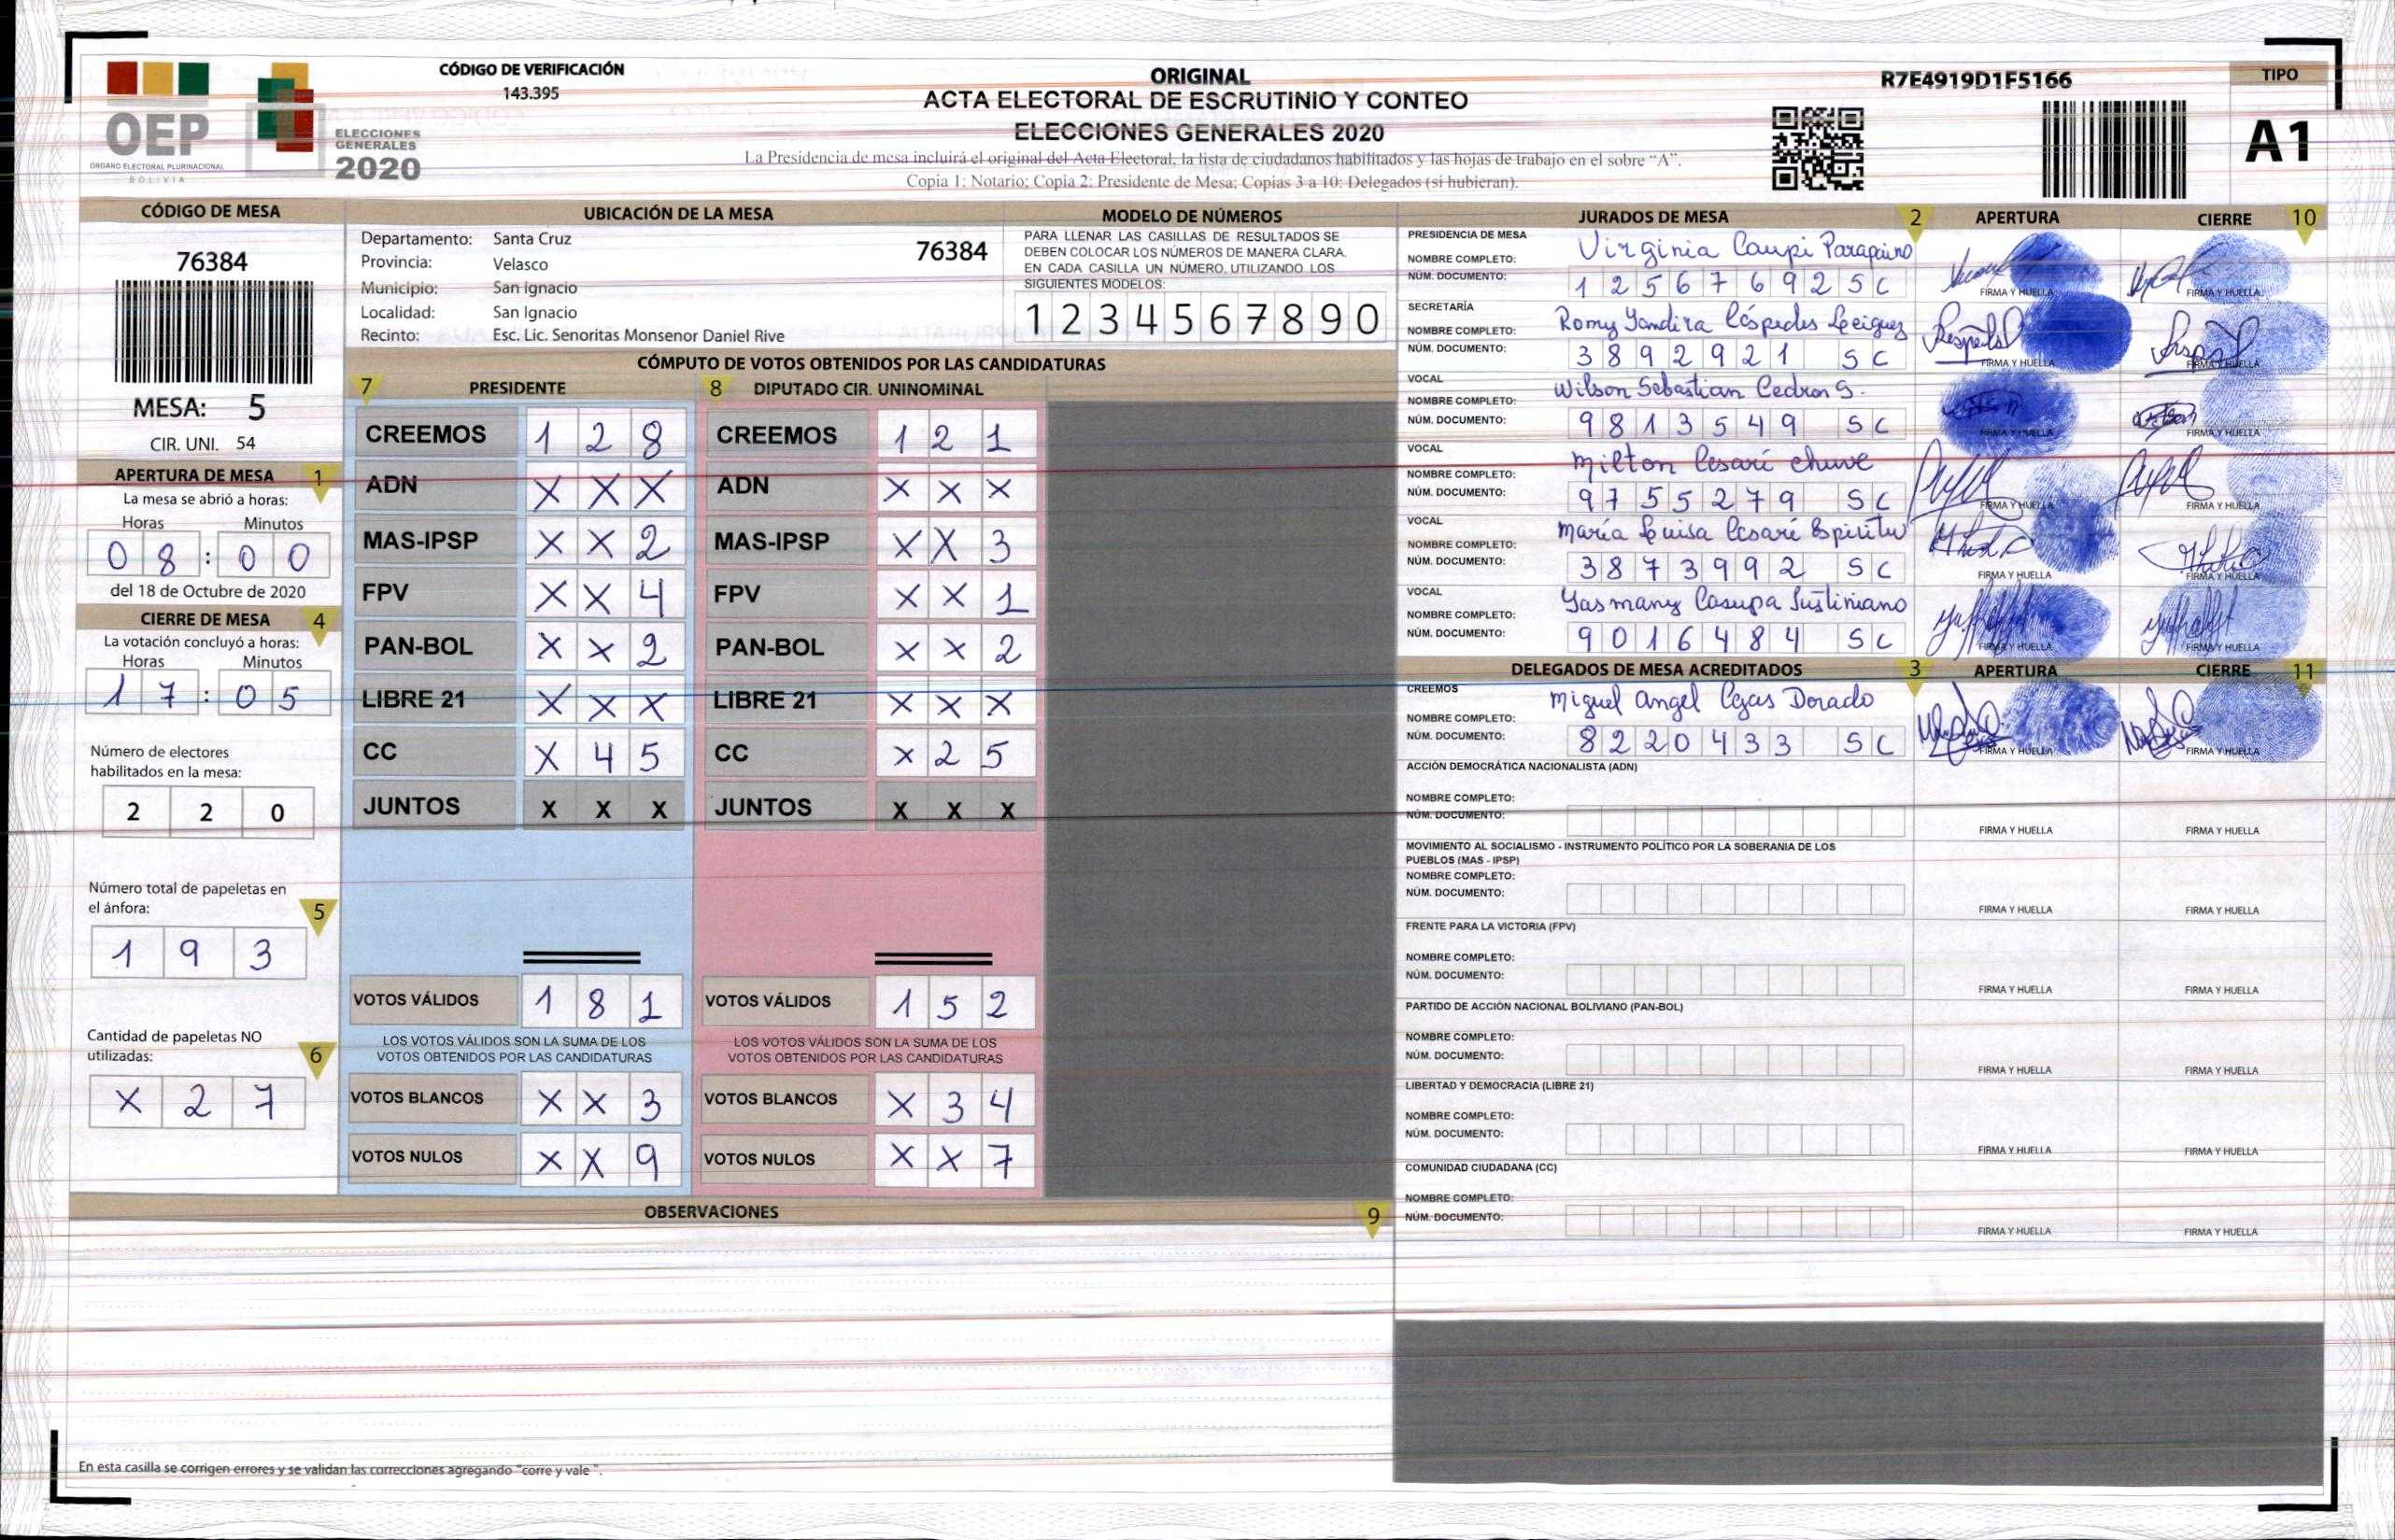 CÓDIGO DE VERIFICACIÓN
143.395
ORIGINAL
ACTA ELECTORAL DE ESCRUTINIO Y CONTEO
ELECCIONES GENERALES 2020
La Presidencia de mesa incluirá el original del Acta Electoral, la lista de ciudadanos habilitados y las hojas de trabajo en el sobre "A".
Copia 1: Notario; Copia 2: Presidente de Mesa; Copias 3 a 10: Delegados (si hubieran).
R7E4919D1F5166
TIPO
A1
OEP
ORGANO ELECTORAL PLURINACIONAL
BOLIVIA
ELECCIONES
GENERALES
2020
CÓDIGO DE MESA
76384
MESA: 5
CIR. UNI. 54
APERTURA DE MESA 1
La mesa se abrió a horas:
Horas Minutos
0 8 : 0 0
del 18 de Octubre de 2020
CIERRE DE MESA 4
La votación concluyó a horas:
Horas Minutos
1 7 : 0 5
Número de electores
habilitados en la mesa:
2 2 0
Número total de papeletas en
el ánfora:
5
1 9 3
Cantidad de papeletas NO
utilizadas:
6
X 2 7
UBICACIÓN DE LA MESA
Departamento: Santa Cruz
Provincia: Velasco
Municipio: San Ignacio
Localidad: San Ignacio
Recinto: Esc. Lic. Senoritas Monsenor Daniel Rive
76384
MODELO DE NÚMEROS
PARA LLENAR LAS CASILLAS DE RESULTADOS SE
DEBEN COLOCAR LOS NÚMEROS DE MANERA CLARA.
EN CADA CASILLA UN NÚMERO, UTILIZANDO LOS
SIGUIENTES MODELOS:
1 2 3 4 5 6 7 8 9 0
CÓMPUTO DE VOTOS OBTENIDOS POR LAS CANDIDATURAS
7 PRESIDENTE 8 DIPUTADO CIR. UNINOMINAL
CREEMOS 1 2 8 CREEMOS 1 2 1
ADN X X X ADN X X X
MAS-IPSP X X 2 MAS-IPSP X X 3
FPV X X 4 FPV X X 1
PAN-BOL X X 2 PAN-BOL X X 2
LIBRE 21 X X X LIBRE 21 X X X
CC X 4 5 CC X 2 5
JUNTOS X X X JUNTOS X X X
VOTOS VÁLIDOS 1 8 1 VOTOS VÁLIDOS 1 5 2
LOS VOTOS VÁLIDOS SON LA SUMA DE LOS LOS VOTOS VÁLIDOS SON LA SUMA DE LOS
VOTOS OBTENIDOS POR LAS CANDIDATURAS VOTOS OBTENIDOS POR LAS CANDIDATURAS
VOTOS BLANCOS X X 3 VOTOS BLANCOS X 3 4
VOTOS NULOS X X 9 VOTOS NULOS X X 7
OBSERVACIONES 9
En esta casilla se corrigen errores y se validan las correcciones agregando "corre y vale ".
JURADOS DE MESA 2 APERTURA CIERRE 10
PRESIDENCIA DE MESA
NOMBRE COMPLETO: Virginia Caupi Parapaino
NÚM. DOCUMENTO: 1 2 5 6 7 6 9 2 S C
FIRMA Y HUELLA FIRMA Y HUELLA
SECRETARÍA
NOMBRE COMPLETO: Romy Yandira Céspedes Leigues
NÚM. DOCUMENTO: 3 8 9 2 9 2 1 S C
FIRMA Y HUELLA FIRMA Y HUELLA
VOCAL
NOMBRE COMPLETO: Wilson Sebastian Cedron S.
NÚM. DOCUMENTO: 9 8 1 3 5 4 9 S C
FIRMA Y HUELLA FIRMA Y HUELLA
VOCAL
NOMBRE COMPLETO: Milton Cesarí Chuve
NÚM. DOCUMENTO: 9 7 5 5 2 7 9 S C
FIRMA Y HUELLA FIRMA Y HUELLA
VOCAL
NOMBRE COMPLETO: María Luisa Cesarí Espiritu
NÚM. DOCUMENTO: 3 8 7 3 9 9 2 S C
FIRMA Y HUELLA FIRMA Y HUELLA
VOCAL
NOMBRE COMPLETO: Yasmany Casupa Justiniano
NÚM. DOCUMENTO: 9 0 1 6 4 8 4 S C
FIRMA Y HUELLA FIRMA Y HUELLA
DELEGADOS DE MESA ACREDITADOS 3 APERTURA CIERRE 11
CREEMOS
NOMBRE COMPLETO: Miguel Angel Dorado
NÚM. DOCUMENTO: 8 2 2 0 4 3 3 S C
FIRMA Y HUELLA FIRMA Y HUELLA
ACCIÓN DEMOCRÁTICA NACIONALISTA (ADN)
NOMBRE COMPLETO:
NÚM. DOCUMENTO:
FIRMA Y HUELLA FIRMA Y HUELLA
MOVIMIENTO AL SOCIALISMO - INSTRUMENTO POLÍTICO POR LA SOBERANIA DE LOS
PUEBLOS (MAS - IPSP)
NOMBRE COMPLETO:
NÚM. DOCUMENTO:
FIRMA Y HUELLA FIRMA Y HUELLA
FRENTE PARA LA VICTORIA (FPV)
NOMBRE COMPLETO:
NÚM. DOCUMENTO:
FIRMA Y HUELLA FIRMA Y HUELLA
PARTIDO DE ACCIÓN NACIONAL BOLIVIANO (PAN-BOL)
NOMBRE COMPLETO:
NÚM. DOCUMENTO:
FIRMA Y HUELLA FIRMA Y HUELLA
LIBERTAD Y DEMOCRACIA (LIBRE 21)
NOMBRE COMPLETO:
NÚM. DOCUMENTO:
FIRMA Y HUELLA FIRMA Y HUELLA
COMUNIDAD CIUDADANA (CC)
NOMBRE COMPLETO:
NÚM. DOCUMENTO:
FIRMA Y HUELLA FIRMA Y HUELLA